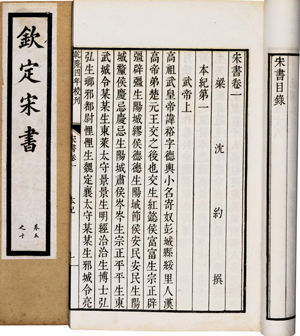 欽定宋書
卷五
之十
宋書目錄
宋書卷一
梁 沈約 撰
本紀第一
武帝上
高祖武皇帝諱裕字德輿小名寄奴彭城縣綏里人漢
高帝弟楚元王交之後也交生紅懿侯富富生宗正辟
彊辟彊生陽城繆侯德德生陽城節侯安民安民生陽
城釐侯慶忌慶忌生陽城肅侯岑岑生宗正平平生東
武城令某某生東萊太守景景生明經洽洽生博士弘
弘生琅邪都尉悝悝生魏定襄太守某某生邪城令亮
乾隆四年校刊
宋書卷一
本紀
一